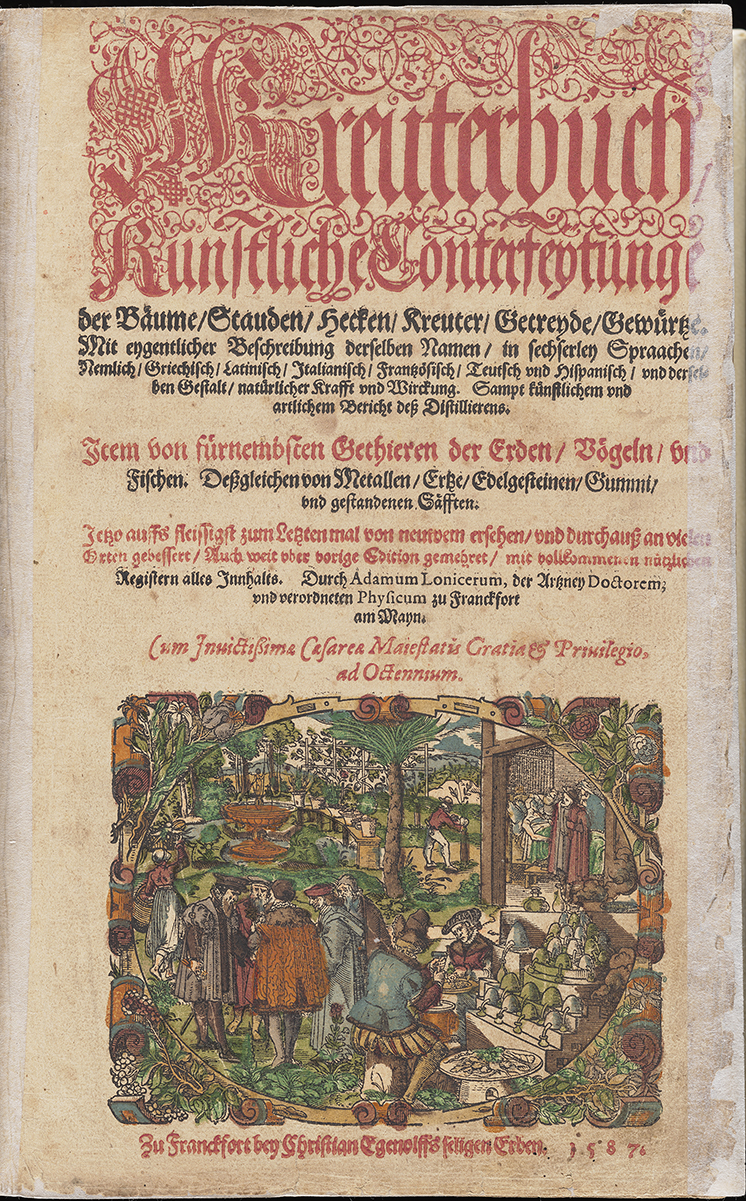 Kreuterbuch/
Kunstliche Conterfeytunge
der Bäume/Stauden/Hecken/Kreuter/Getreyde/Gewürtze.
Mit eygentlicher Beschreibung derselben Namen/in sechserley Spraachen/
Nemlich/Griechisch/Latinisch/Italianisch/Frantzösisch/Teutsch vnd Hispanisch/vnd dersel-
ben Gestalt/natürlicher Krafft vnd Wirckung. Sampt künstlichem vnd
artlichem Bericht deß Distillierens.
Item von fürnembsten Gethieren der Erden/Vögeln/vnd
Fischen. Deßgleichen von Metallen/Ertze/Edelgesteinen/Gummi/
vnd gestandenen Säfften.
Jetzo auffs fleissigst zum Letzten mal von neuwem ersehen/vnd durchauß an vielen
Orten gebessert/Auch weit vber vorige Edition gemehret/mit vollkommenen nützlichen
Registern alles Innhalts. Durch Adamum Lonicerum, der Artzney Doctorem,
vnd verordneten Physicum zu Franckfort
am Mayn.
Cum Inuictißimæ Cæsareæ Maiestatis Gratia & Priuilegio,
ad Octennium.
Zu Franckfort bey Christian Egenolffs seligen Erben. 1587.